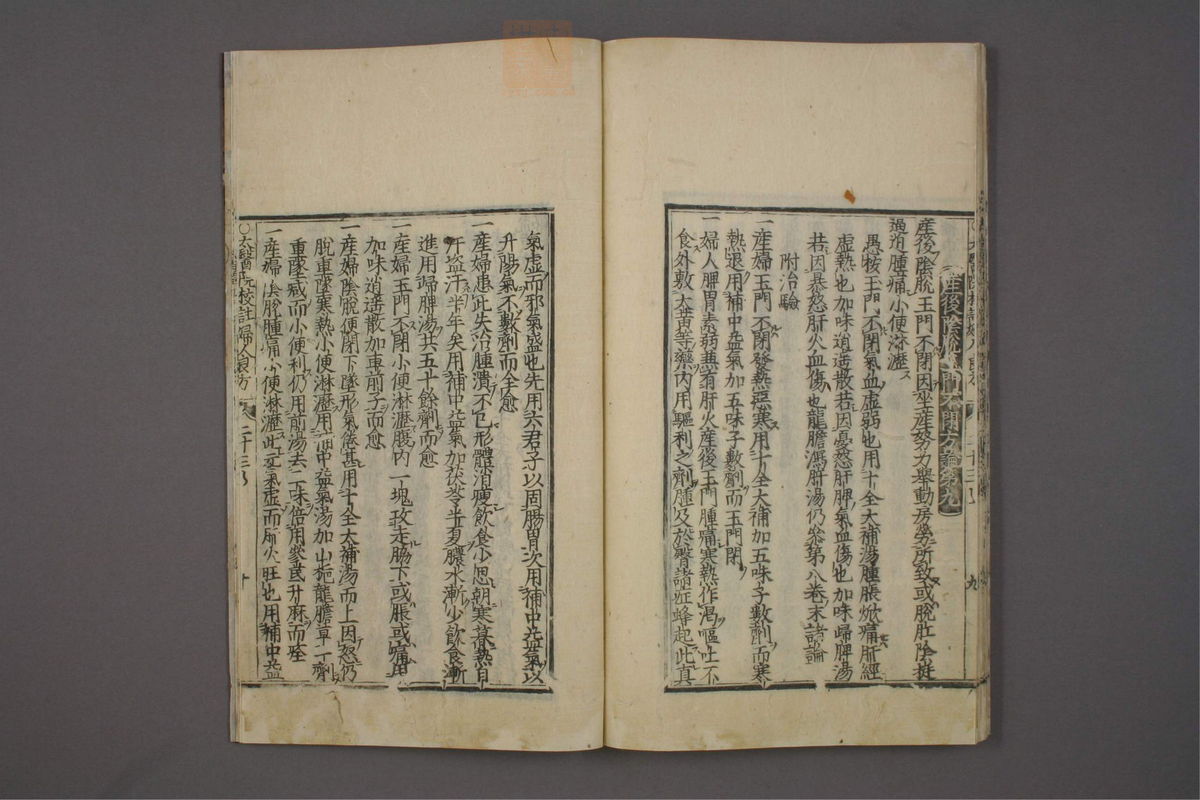 産後陰脱玉門不閉方論第九
産後陰脱玉門不閉因坐産努力舉動房勞所致或脱肛陰挺
過迫腫痛小便淋瀝
愚按玉門不閉氣血虛弱也用十全大補湯腫脹焮痛肝經
虛熱也加味逍遥散若因憂怒肝脾氣血傷也加味歸脾湯
若因暴怒肝火血傷也龍膽瀉肝湯仍參第八卷末諸論
附治驗
一産婦玉門不閉發熱惡寒用十全大補加五味子數劑而寒
熱退用補中益氣加五味子數劑而玉門閉
一婦人脾胃素弱兼有肝火産後玉門腫痛寒熱作渴嘔吐不
食外敷大黄等藥内用驅利之劑腫及於臀諸症蜂起此真
氣虛而邪氣盛也先用六君子以固腸胃次用補中益氣以
升陽氣不數劑而全愈
一産婦患此失治腫潰不已形體消瘦飲食少思朝寒暮熱自
汗盗汗半年矣用補中益氣加茯苓半夏膿水漸少飲食漸
進用歸脾湯共五十餘劑而愈
一産婦玉門不閉小便淋瀝腹内一塊攻走脇下或脹或痛用
加味逍遥散加車前子而愈
一産婦陰脱便閉下墜形氣倦甚用十全大補湯而上因怒仍
脱重墜寒熱小便淋瀝用補中益氣湯加山梔龍膽草一劑
重墜減而小便利仍用前湯去二味倍用參芪升麻而痊
一産婦陰脱腫痛小便淋瀝此元氣虛而肝火旺也用補中益
○太醫院校註婦人良方
二十三
十
九